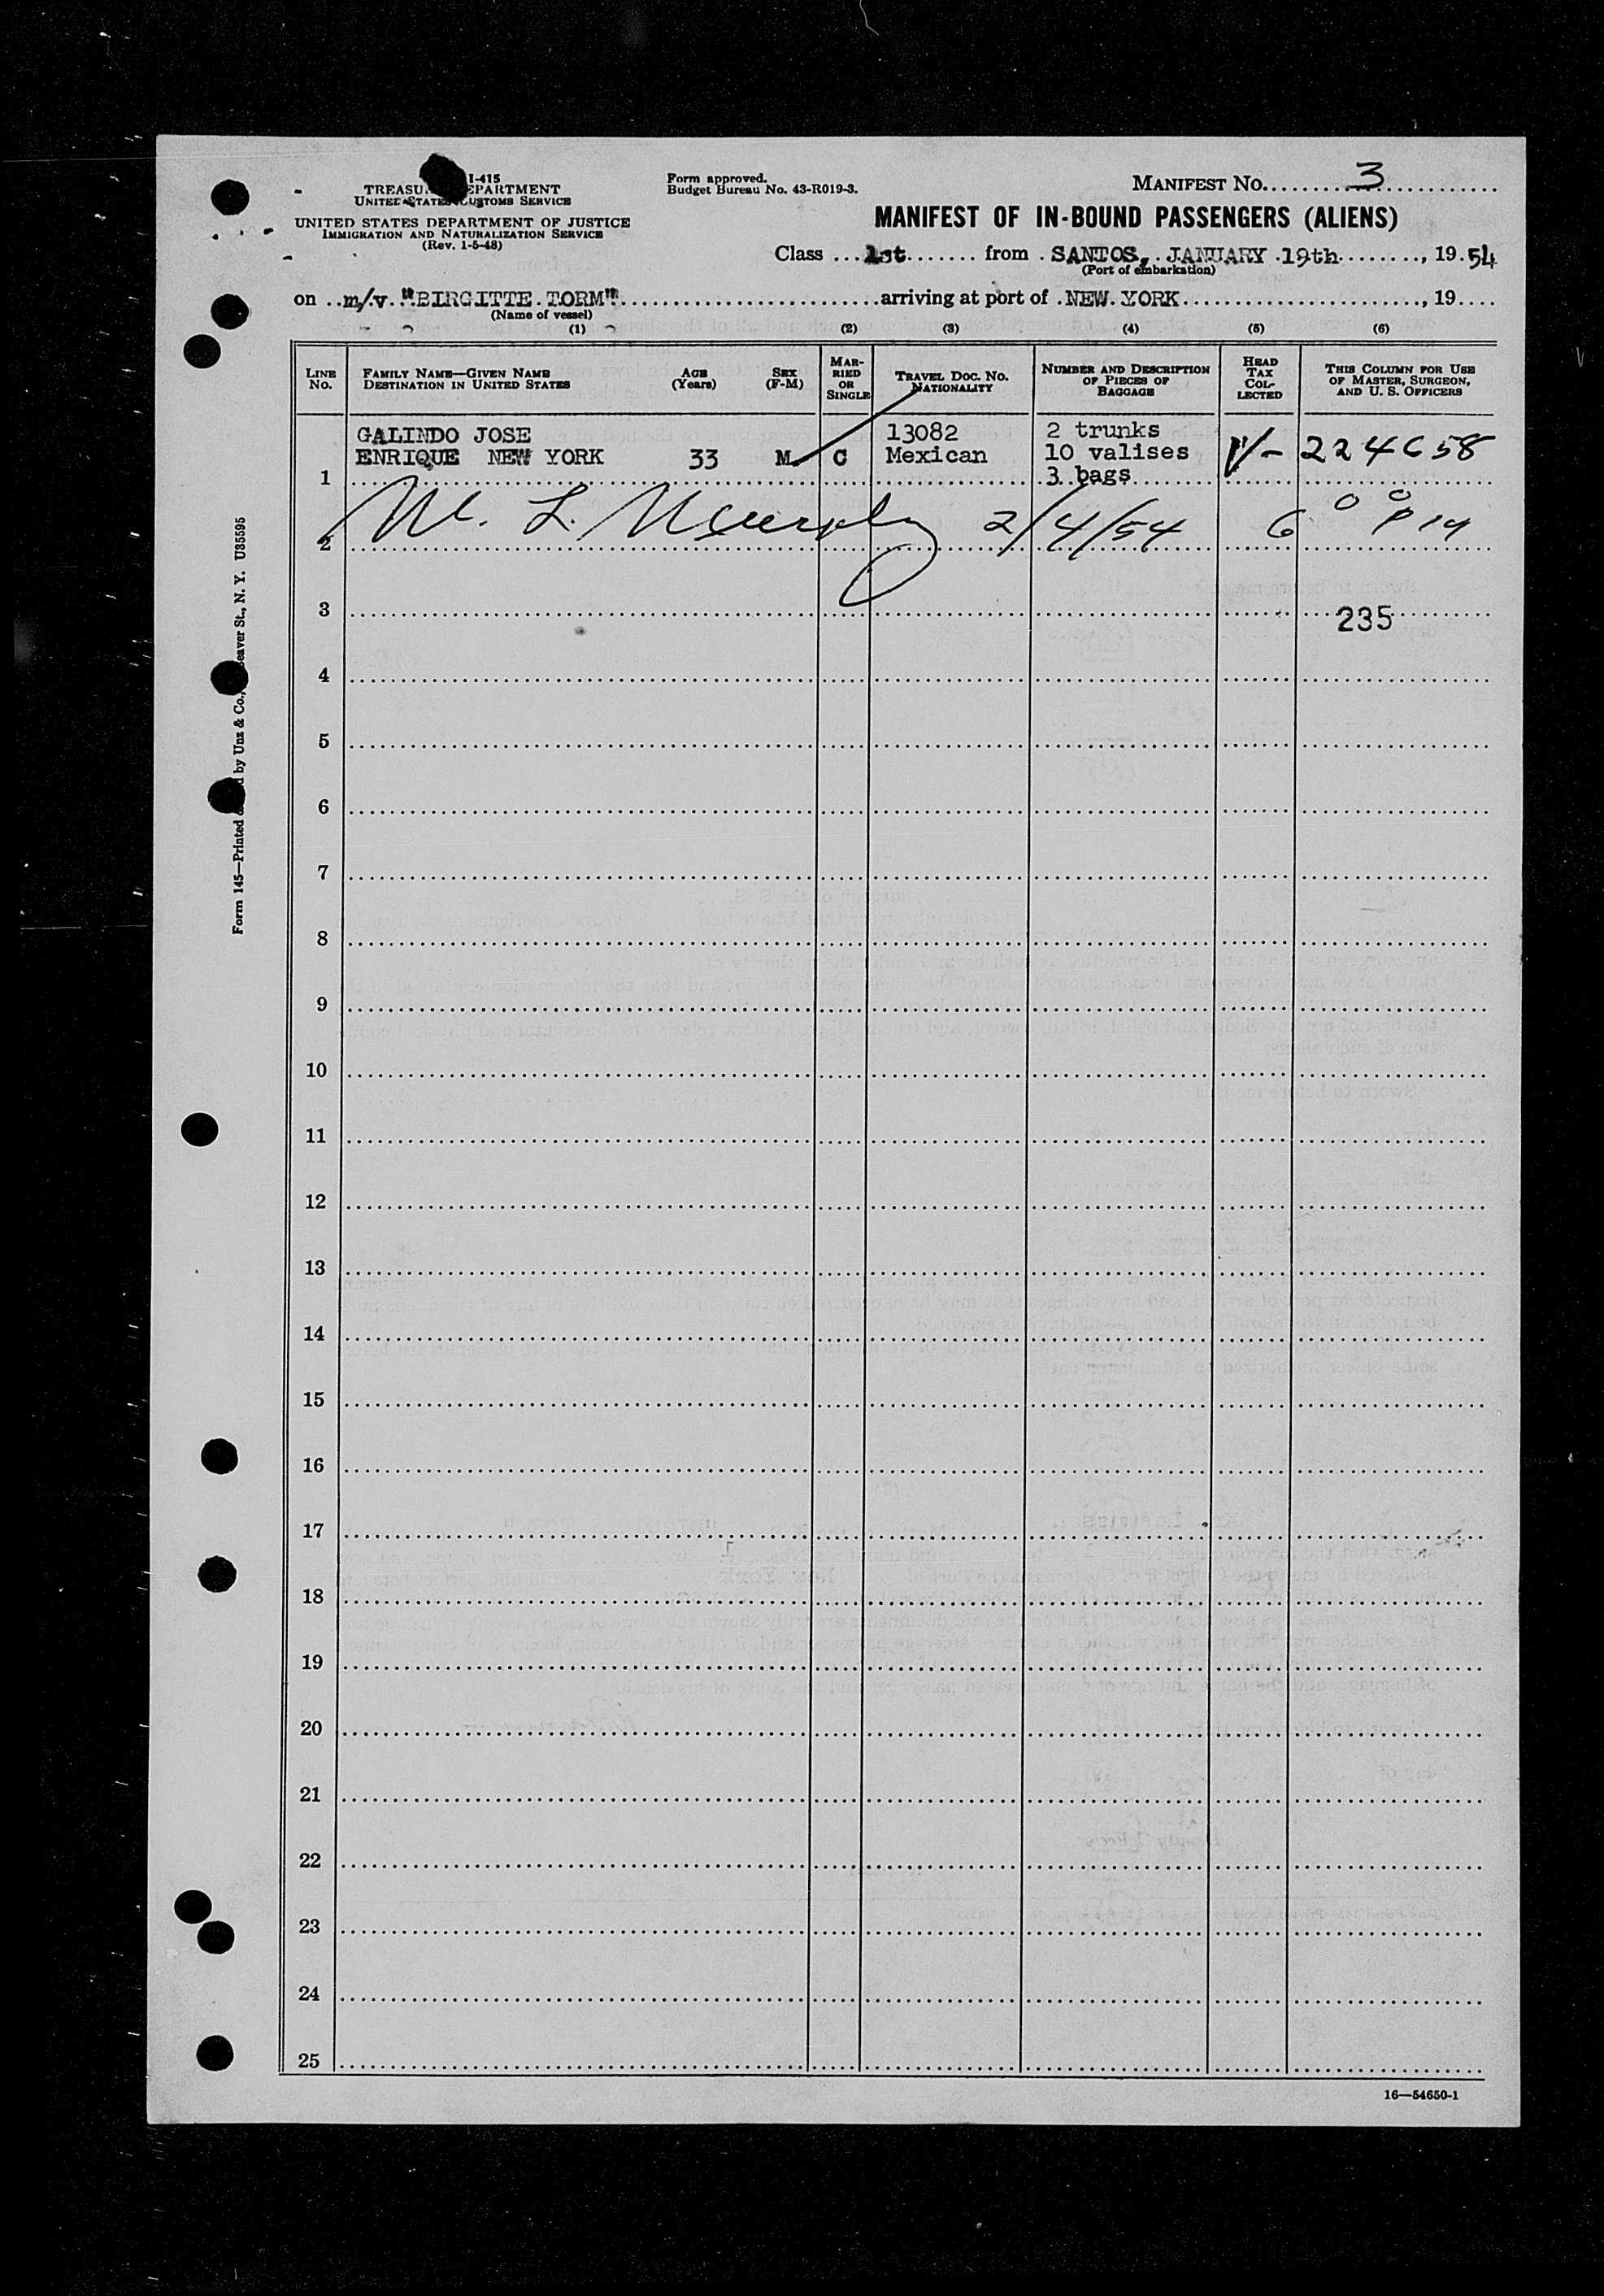 I-415
TREASU DEPARTMENT
UNITED STATES CUSTOMS SERVICE
UNITED STATES DEPARTMENT OF JUSTICE
IMMIGRATION AND NATURALIZATION SERVICE
(Rev. 1-5-48)
Form approved.
Budget Bureau No. 43-R019-3.
MANIFEST NO. 3
MANIFEST OF IN-BOUND PASSENGERS (ALIENS)
Class 1st from SANTOS, JANUARY 19th, 1954
(Port of embarkation)
on m/v. "BIRGITTE TORM" arriving at port of NEW YORK, 19
(Name of vessel)
(1) (2) (3) (4) (5) (6)
LINE NO. FAMILY NAME—GIVEN NAME DESTINATION IN UNITED STATES AGE (Years) SEX (F-M) MARRIED OR SINGLE TRAVEL DOC. NO. NATIONALITY NUMBER AND DESCRIPTION OF PIECES OF BAGGAGE HEAD TAX COLLECTED THIS COLUMN FOR USE OF MASTER, SURGEON, AND U. S. OFFICERS
GALINDO JOSE 13082 2 trunks
ENRIQUE NEW YORK 33 M C Mexican 10 valises V-224658
1 3 bags
2 M. L. Murphy 2/4/54 6 00 PM
3 235
4
5
6
7
8
9
10
11
12
13
14
15
16
17
18
19
20
21
22
23
24
25
16—54650-1
Form 145—Printed by Unz & Co., eaver St., N. Y. U35595